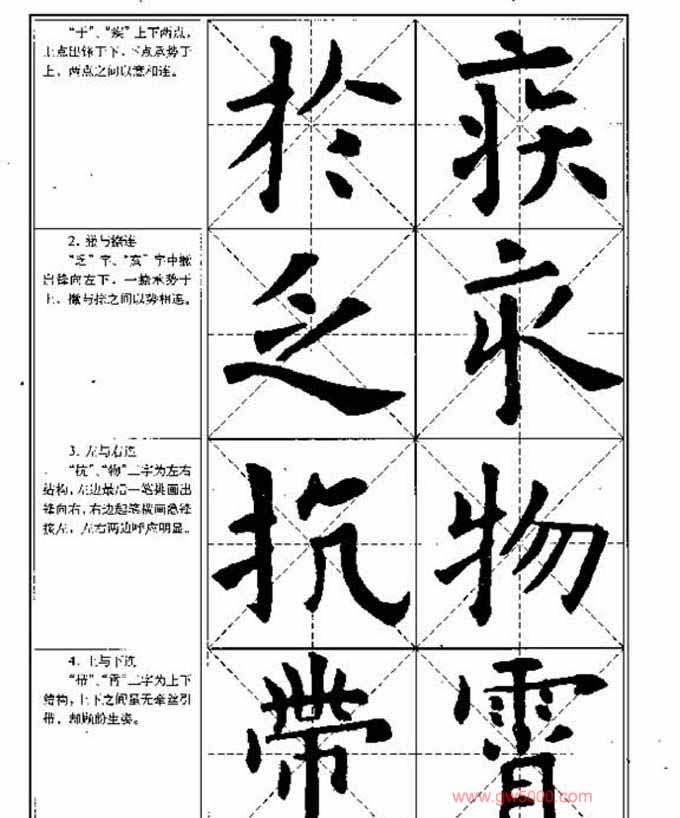 “于”、“疾”上下两点，
上点出锋于下，下点承势于
上，两点之间以意相连。
於 疾
2. 撇与捺连
“乏”字、“亥”字中撇
出锋向左下，一捺承势于
上，撇与捺之间以势相连。
乏
3. 左与右连
“抗”、“物”二字为左右
结构，左边最后一笔挑画出
锋向右，右边起笔横画逆锋
接左，左右两边呼应明显。
抗 物
4. 上与下连
“带”、“霄”二字为上下
结构，上下之间虽无牵丝引
带，却顾盼生姿。
帶 霄
www.gw5000.com